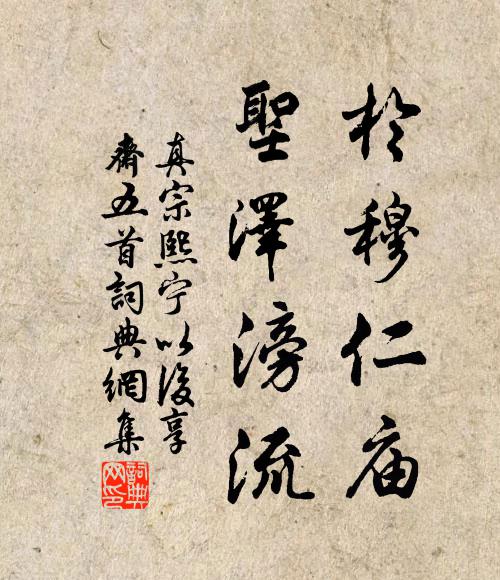 於穆仁庙
聖澤滂流
真宗熙宁以後享
齋五首詞典網集
詞典
网印